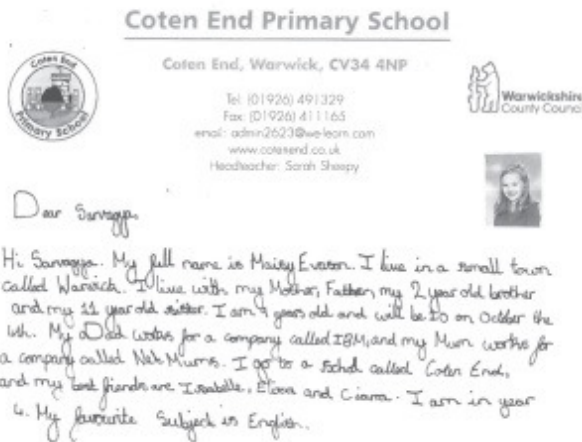 Coten End Primary School
Coten End, Warwick, CV34 4NP
Coten End
Primary School
Tel: (01926) 491329
Fax: (01926) 411165
email: admin2623@we-learn.com
www.cotenend.co.uk
Headteacher: Sarah Sheepy
Warwickshire
County Council
Dear Sarvagya,
Hi Sarvagya. My full name is Maisy Evason. I live in a small town
called Warwick. I live with my Mother, Father, my 2 year old brother
and my 11 year old sister. I am 9 years old and will be 10 on October the
My Dad works for a company called IBM, and my Mum works for
a company called Net Mums. I go to a school called Coten End,
and my best friends are Isabelle, and Ciara. I am in year
4. My favourite Subject is English.